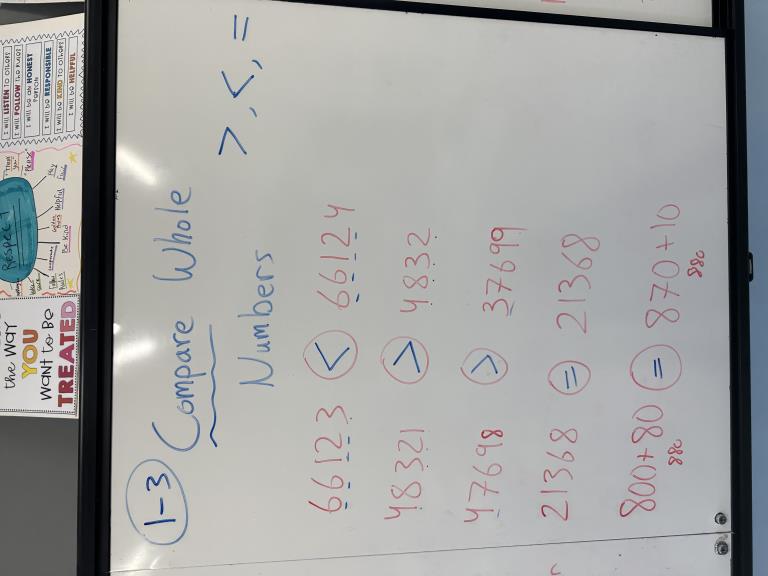 1-3 Compare Whole
Numbers >, <, =
66123 < 66124
48321 > 4832
47698 > 37699
21368 = 21368
800+80 = 870+10
880 880
the way
YOU
want to Be
TREATED
Respect
Be Kind
Helpful
I will LISTEN to others
I will FOLLOW the rules
I will be an HONEST
person
I will be RESPONSIBLE
I will be KIND to others
I will be HELPFUL